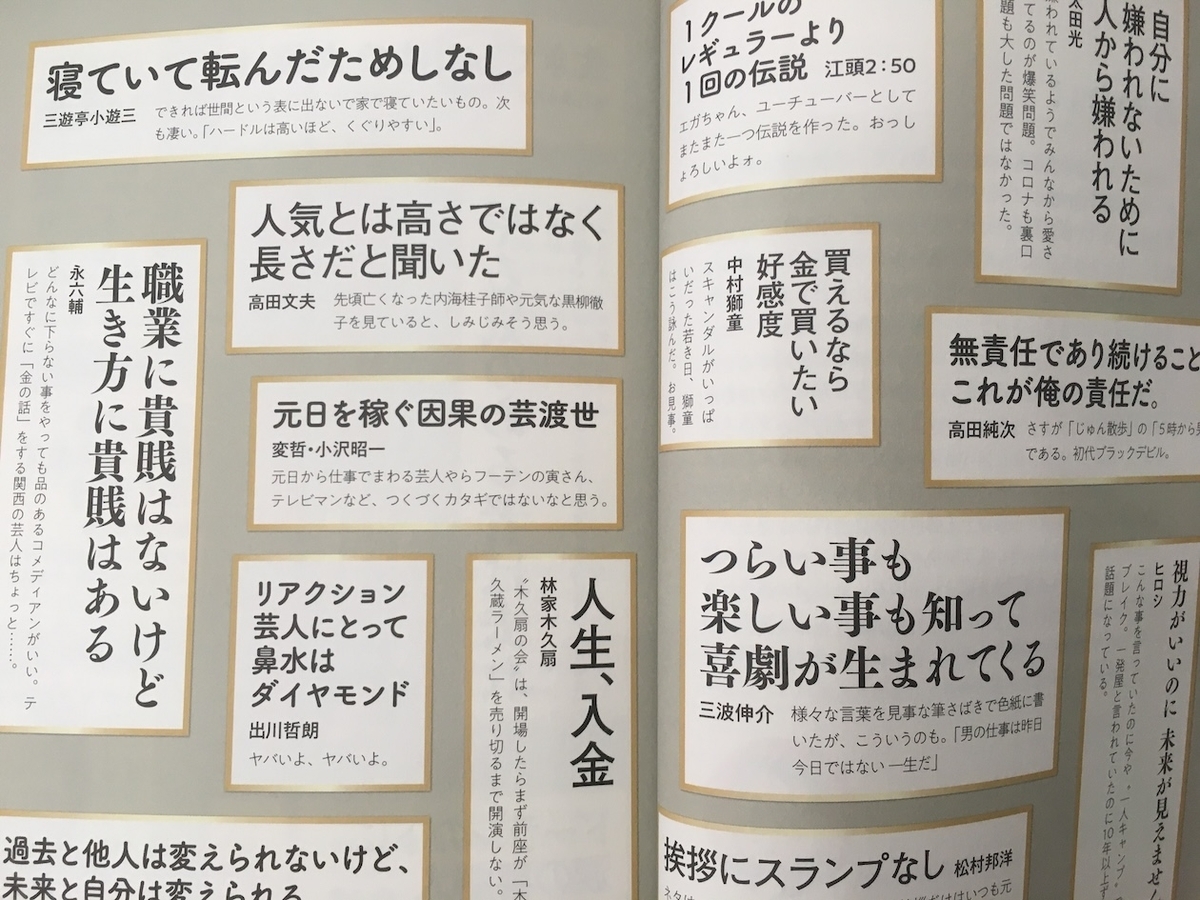 寝ていて転んだためしなし
三遊亭小遊三
できれば世間という表に出ないで家で寝ていたいもの。次
も凄い。「ハードルは高いほど、くぐりやすい」。
人気とは高さではなく
長さだと聞いた
高田文夫
先頃亡くなった内海桂子師や元気な黒柳徹
子を見ていると、しみじみそう思う。
職業に貴賤はないけど
生き方に貴賤はある
永六輔
どんなに下らない事をやっても品のあるコメディアンがいい。テ
レビですぐに「金の話」をする関西の芸人はちょっと……。
元日を稼ぐ因果の芸渡世
変哲・小沢昭一
元日から仕事でまわる芸人やらフーテンの寅さん、
テレビマンなど、つくづくカタギではないなと思う。
リアクション
芸人にとって
鼻水は
ダイヤモンド
出川哲朗
ヤバいよ、ヤバいよ。
人生、入金
林家木久扇
〝木久扇の会〟は、開場したらまず前座が「木
久蔵ラーメン」を売り切るまで開演しない。
過去と他人は変えられないけど、
未来と自分は変えられる
1クールの
レギュラーより
1回の伝説
江頭2:50
エガちゃん、ユーチューバーとして
またまた一つ伝説を作った。おっし
ょろしいよォ。
自分に
嫌われないために
人から嫌われる
太田光
嫌われているようでみんなから愛さ
れてるのが爆笑問題。コロナも裏口
問題も大した問題ではなかった。
買えるなら
金で買いたい
好感度
中村獅童
スキャンダルがいっぱ
いだった若き日、獅童
はこう詠んだ。お見事。
無責任であり続けること
これが俺の責任だ。
高田純次
さすが「じゅん散歩」の「5時から男
である。初代ブラックデビル。
つらい事も
楽しい事も知って
喜劇が生まれてくる
三波伸介
様々な言葉を見事な筆さばきで色紙に書
いたが、こういうのも。「男の仕事は昨日
今日ではない 一生だ」
視力がいいのに 未来が見えません
ヒロシ
こんな事を言っていたのに今や〝一人キャンプ〟で
ブレイク。一発屋と言われていたのに10年以上ず
話題になっている。
挨拶にスランプなし
松村邦洋